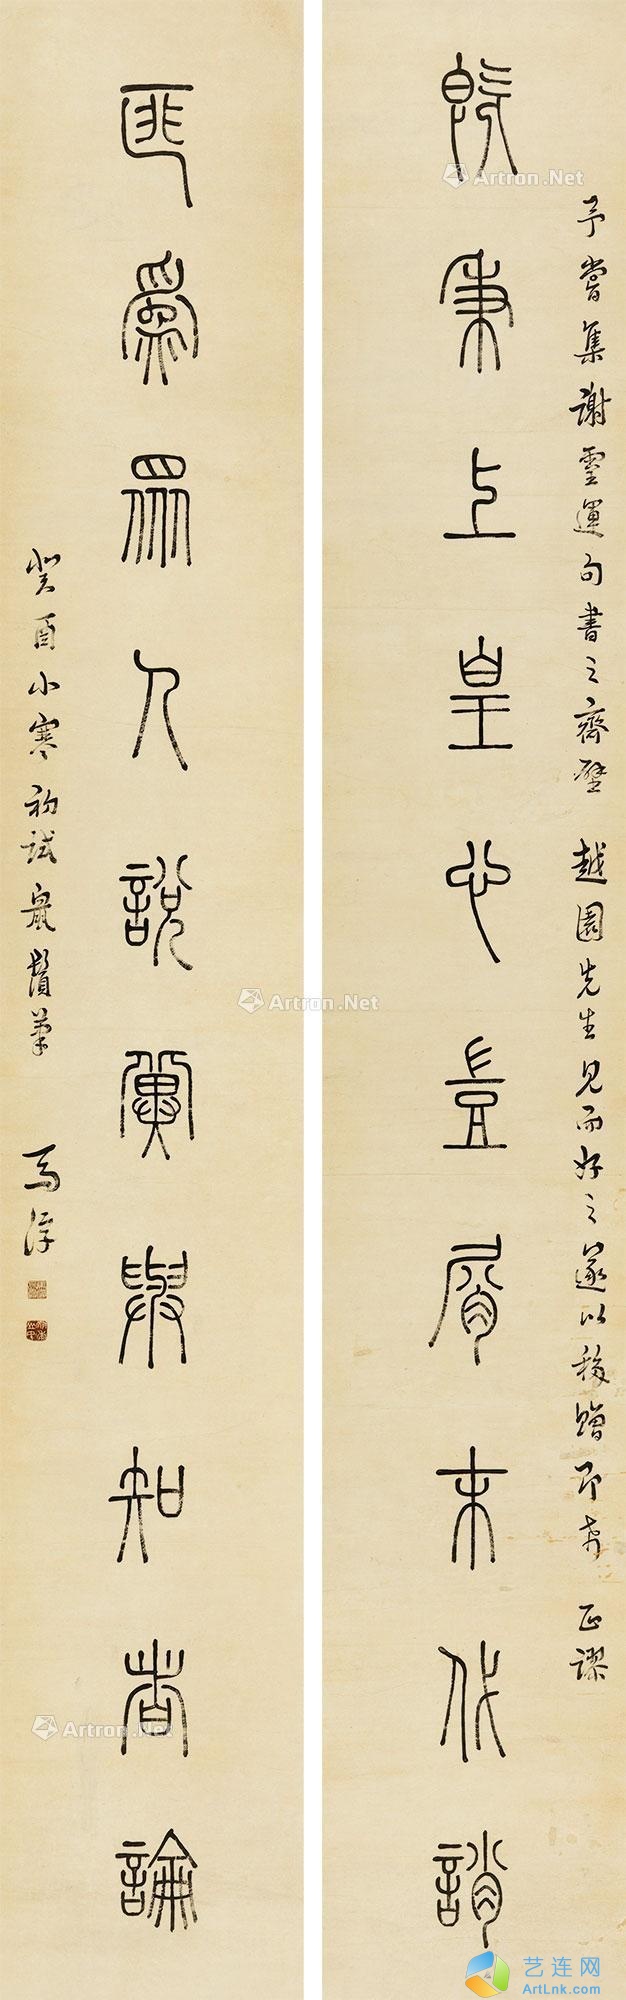 予嘗集謝靈運句書之齋壁 越園先生見而好之遂以移贈即希 正謬
既秉上皇心豈屑末代誚
匪爲眾人說冀與知者論
癸酉小寒初試鼠鬚筆 馬浮
Artron.Net
Artron.Net
Artron.Net
Artron.Net
艺连网
ArtLnk.com